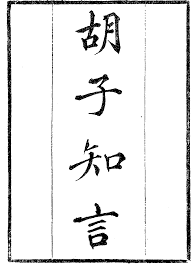 胡子知言